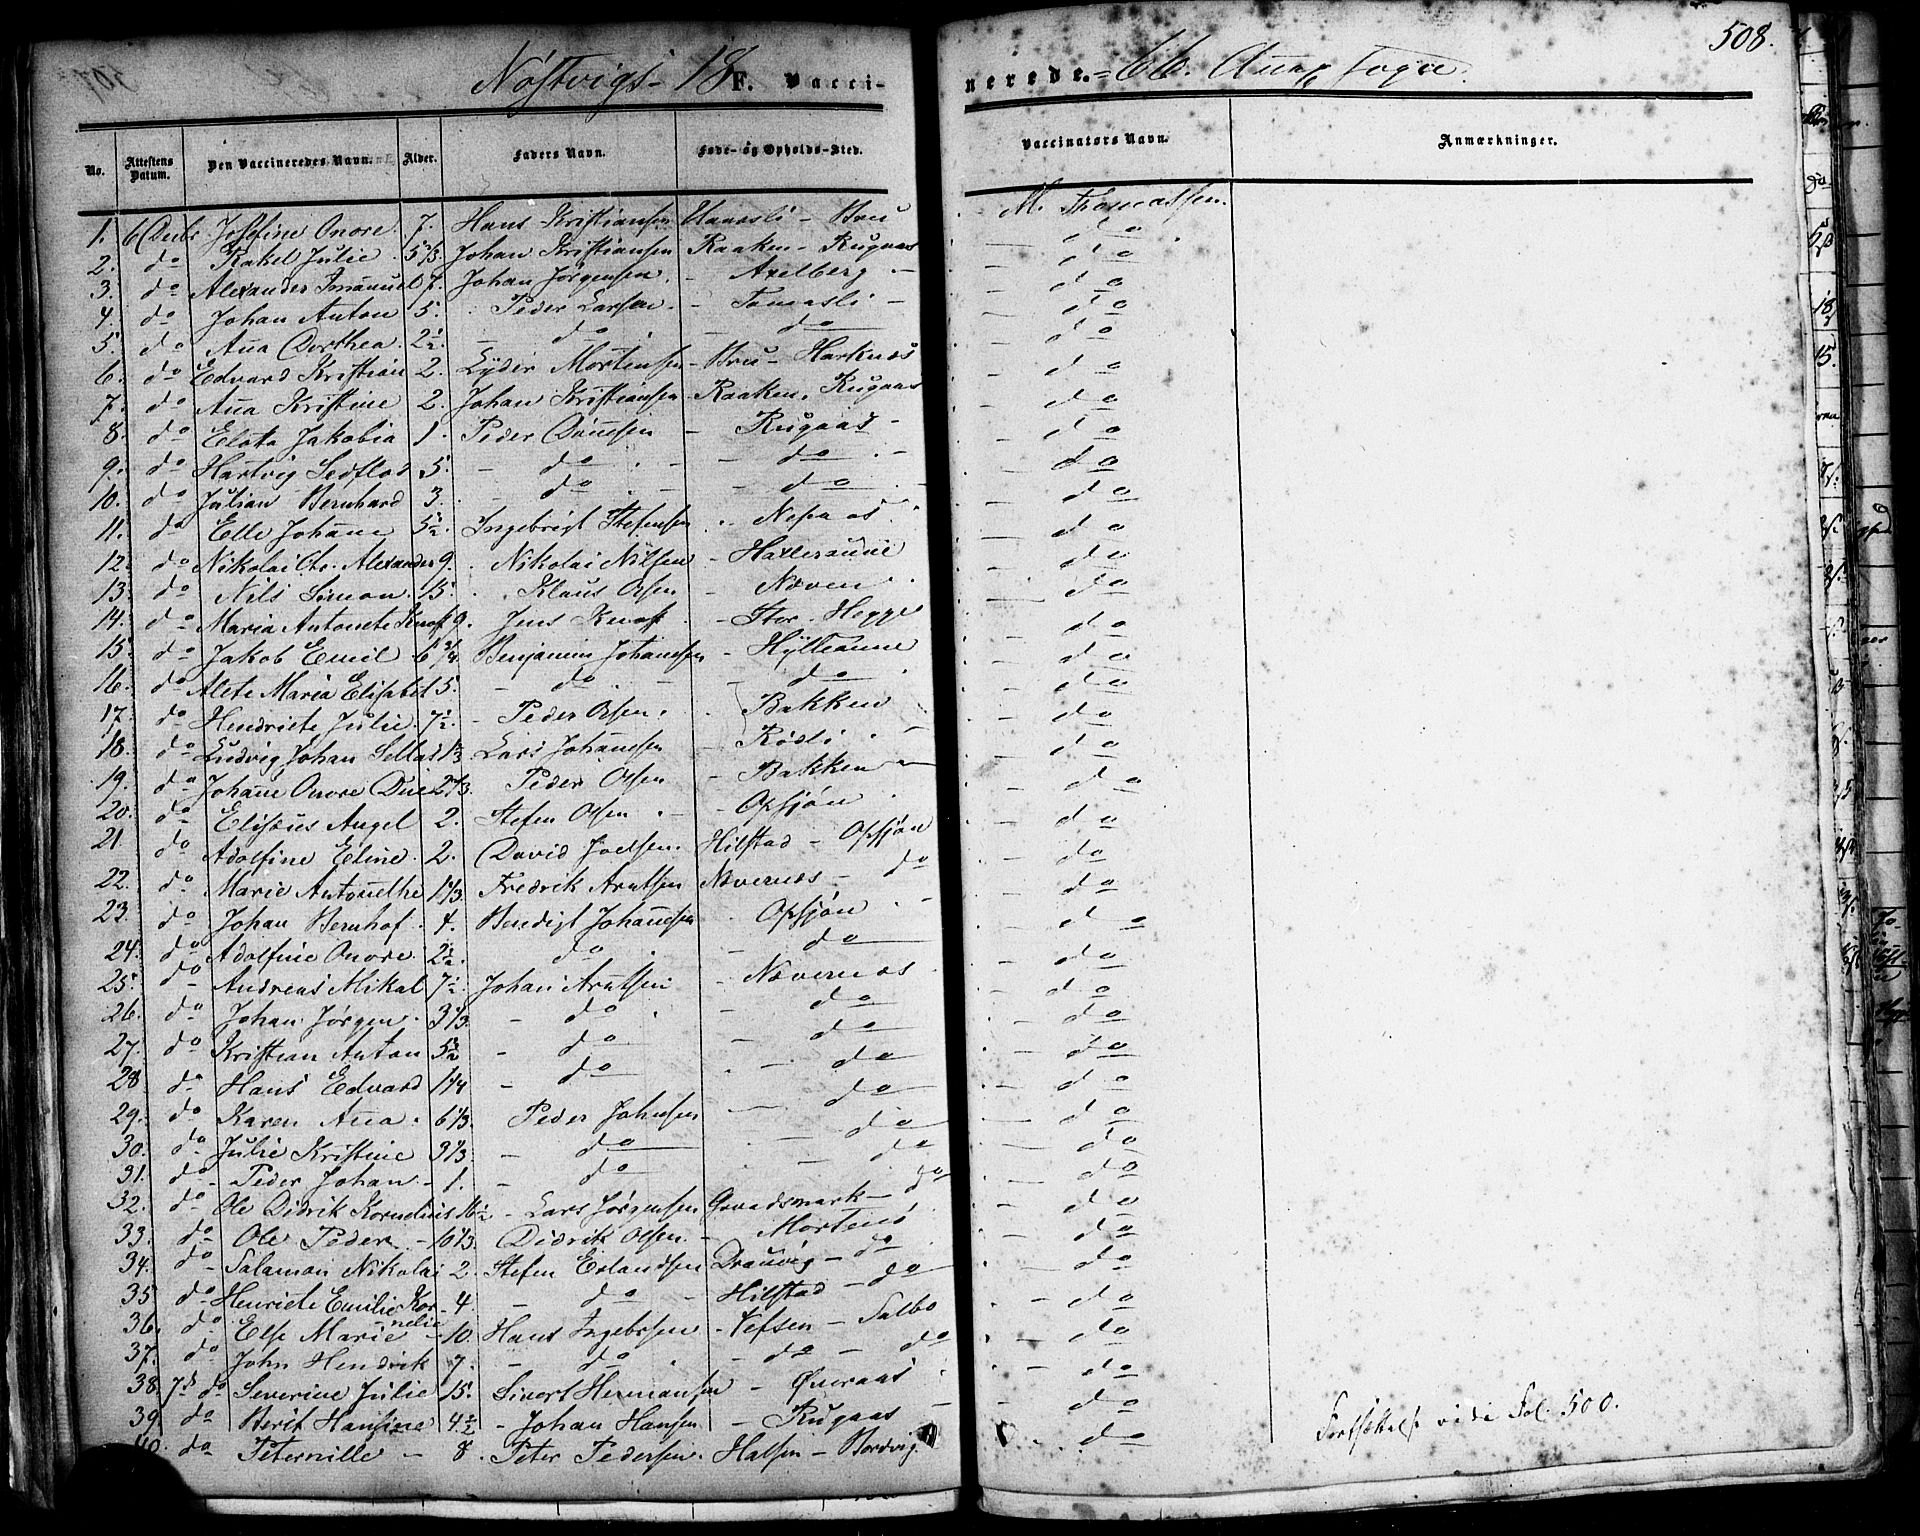 508.
Nøstvigs- 18 F. Vacci-nerede. 66. Annex Sogn.
No. Attestens Datum. Den Vaccineredes Navn. Alder. Faders Navn. Føde- og Opholds-Sted. Vaccinators Navn. Anmærkninger.
1. 6 Decbr Josefine Onore. 7. Hans Kristiansen - Bru - M. Thomassen.
2. do Rakel Julie 5 1/3 Johan Kristiansen Raaken - Rugaas - do
3. do Alexander Imanuel 7. Johan Jørgensen. - Axelberg - - do
4. do Johan Anton 5. Peder Larsen. - Tomasli - - do
5. do Ana Dorthea. 2 1/2 - do - do - do
6. do Edvard Kristian 2. Lyder Mortensen - Bru - Harknæs - do
7. do Ana Kristine 2. Johan Kristiansen - Raaken. Rugaas - do
8. do Jakobia 1. Peder - Rugaas - - do
9. do Hartvig 5. - do - - do - - do
10. do Julian Bernhard 3. - do - - do - - do
11. do Elle Johane 5 1/2 Ingebrigt Stefensen - do
12. do Nikolai Chr. Alexander 9. Nikolai Nilsen - - do
13. do Nils Simon. 15. Klaus Olsen - Næven - do
14. do Maria Antonete Knoff 9. Jens Knoff - Stor-Hegge - do
15. do Jakob Emil 6 3/4 Benjamin Johansen - - do
16. do Alete Maria Elisabet 5. - do. - do - do
17. do Hendriete Julie 7 1/2. - Peder Olsen. Bakken - do
18. do Ludvig Johan 1/3 Lars Johansen - Rødli - - do
19. do Johane Onore 2 1/3 Peder Olsen - Bakken - - do
20. do Elisæus Angel 2. Stefen Olsen - Opsjøn - do
21 do Adolfine Eline. 2. David Joelsen. Hilstad - Opsjøn - do
22. do Marie Antonethe 1 1/3 Fredrik Arntsen Nævernæs - do - do
23. do Johan Bernhof. 4. Bendigt Johansen Opsjøn - - do
24. do Adolfine Onore. 2 1/2 do - do - do
25. do Andreas Mikal 7 1/2. Johan Arntsen - Nævernæs - do
26. do Johan Jørgen. 3 1/3. - do - do - do
27. do Kristian Anton 5 1/2 - do - do - do
28 do Hans Edvard 1 1/4 - do - do - do
29. do Karen Ana. 6 1/3. Peder Johnsen - do - do
30. do Julie Kristine 3 1/3. - do - do - do
31. do Peder Johan - 1. - do - do - do
32. do Ole Didrik Kornelius 16 1/2 - Lars Jørgensen Grandsmark - do - do
33. do Ole Peder - 10 1/3. Didrik Olsen. - Mortenø - do
34. do Salamon Nikolai 2. Stefen Erlandsen - do - do
35 do Henriete Emilie Kor-nelie 4. - do - Hilstad - do - do
36. do Else Marie - 10. Hans Ingebrsen - Vefsen - Salbo - do
37. do John Hendrik 7. - do. - do - do - do
38. 7de do Severine Julie 15. Sivert Hermansen - Øveraas - do
39. do Berit Hansine 4 1/2 - Johan Hansen - Rugaas - - do
40. do Peternille - 8. Peter Pedersen. Halsen - Bordvig - do
Fortsættelse vide Fol. 500.